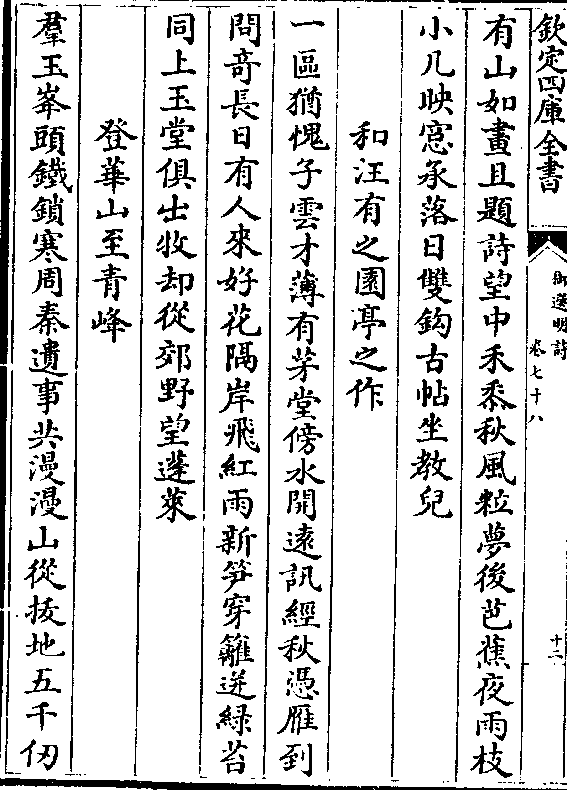 欽定四庫全書
御選明詩
卷七十八
十二
有山如畫且題詩望中禾黍秋風粒夢後芭蕉夜雨枝
小几映窓承落日雙鈎古帖坐教兒
和汪有之園亭之作
一區猶愧子雲才薄有茅堂傍水開遠訊經秋憑雁到
問竒長日有人來好花隔岸飛紅雨新笋穿籬迸緑苔
同上玉堂俱士牧却從郊野望蓬萊
登華山至青峰
羣玉峯頭鐵鎖寒周秦遺事共漫漫山從拔地五千仞